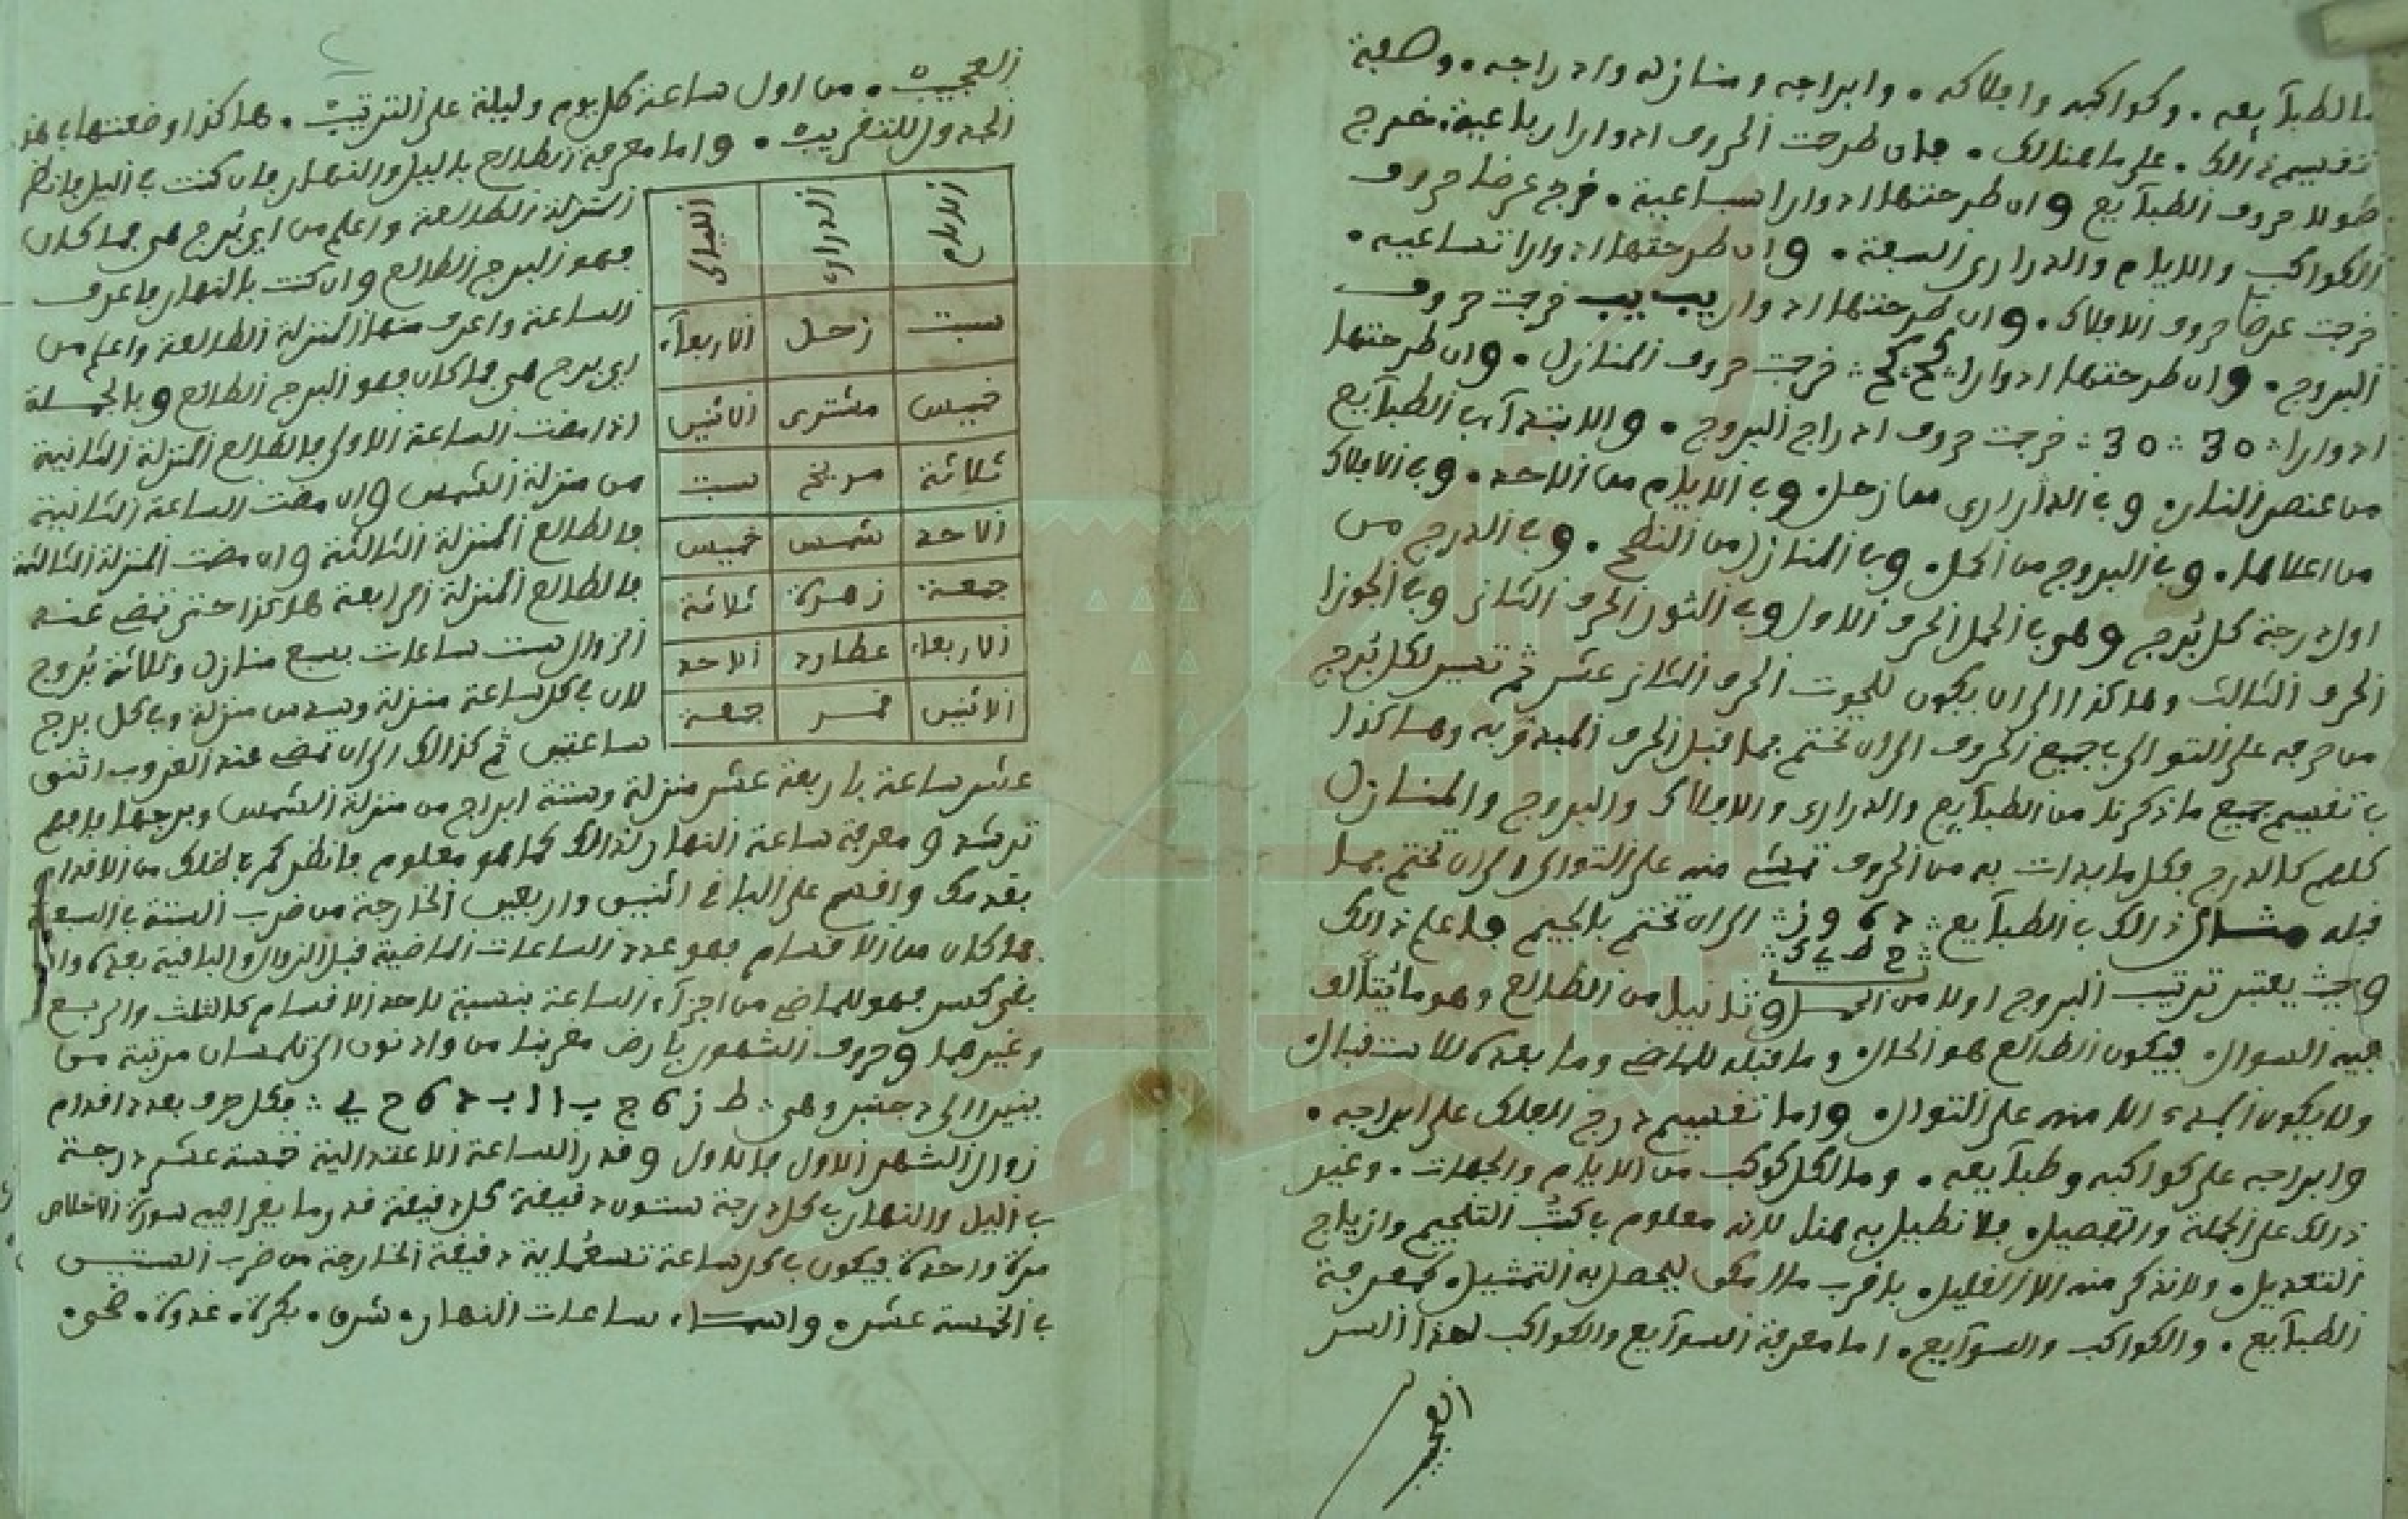 بالطبآيعه. وكواكبه وافلاكه. وابراجه ومنازله وادراجه. وصفة
تقسيم ذالك. على ما هنالك. فان طرحت الحروف ادوارا رباعية. خرج
طولا حروف الطبآيع وان طرحتها ادوارا سباعية. خرج عرضا حروف
الكواكب والايام والدراري السبعة. وان طرحتها ادوارا تساعيه.
خرجت عرضا حروف الافلاك. وان طرحتها ادوار يب يب خرجت حروف
البروج. وان طرحتها ادوارا كح كح خرجت حروف المنازل. وان طرحتها
ادوارا 30 30 خرجت حروف ادراج البروج. والابتدآ في الطبآيع
من عنصر النار. وفي الدراري من زحل. وفي الايام من الاحد. وفي الافلاك
من اعلاها. وفي البروج من الحمل. وفي المنازل من النطح. وفي الدرج من
اول درجة كل برج وهي في الحمل الحرف الاول وفي الثور الحرف الثاني وفي الجوزا
الحرف الثالث وهاكذا الى ان يكون للحوت الحرف الثاني عشر ثم تسير لكل برج
من حرفه على التوالي في جميع الحروف الى ان تختم بما قبل الحرف المبدو به وهاكذا
في تقسيم جميع ما ذكرنا من الطبآيع والدراري والافلاك والبروج والمنازل
كلهم كالدرج فكل ما بدات به من الحروف تمشي منه على التوالي الى ان تختم بما
قبله مثال ذالك في الطبآيع د ه و ز الى ان تختم بالجيم فاعلم ذالك
ح ط ي ك
وحيث يعتبر ترتيب البروج اولا من الحمل وثانيا من الطالع وهو ما
فيه السوال. فيكون الطالع هو الحال. وما قبله للماضي وما بعده للاستقبال
ولا يكون البدء الا منه على التوال. واما تقسيم درج الفلك على ابراجه.
وابراجه على كواكبه وطبآيعه. وما لكل كوكب من الايام والجهات. وغير
ذالك على الجملة والتفصيل. فلا نطيل به هنا لانه معلوم في كتب التنجيم وازياج
التعديل. ولا نذكر منه الا القليل. باقرب ما امكن ليحصل به التمثيل. كمعرفة
الطبآيع. والكواكب والسوآيع. اما معرفة السوآيع والكواكب لهذا السر
العجيب
العجيب. من اول ساعة كل يوم وليلة على الترتيب. هاكذا وضعتها في هذ
الجدول للتقريب. واما معرفة الطالع بالليل والنهار فان كنت في الليل فانظر
المنزلة الطالعة واعلم من اي برج هي فما كان
فهو البرج الطالع وان كنت بالنهار فاعرف
الساعة واعرف منها المنزلة الطالعة واعلم من
اي برج هي فما كان فهو البرج الطالع وبالجملة
اذا مضت الساعة الاولى فالطالع المنزلة الثانية
من منزلة الشمس وان مضت الساعة الثانية
فالطالع المنزلة الثالثة وان مضت المنزلة الثالثة
فالطالع المنزلة الرابعة هاكذا حتى تمضي عند
الزوال ست ساعات بسبع منازل وثلاثة بروج
لان في كل ساعة منزلة وسدس منزلة وفي كل برج
ساعتين ثم كذالك الى ان تمضي عند الغروب اثنى
الايام الدراري الليالي
سبت زحل الاربعآء
خميس مشترى الاثنين
ثلاثة مريخ سبت
الاحد شمس خميس
جمعة زهرة ثلاثة
الاربعاء عطارد الاحد
الاثنين قمر جمعة
عشر ساعة باربعة عشر منزلة وستة ابراج من منزلة الشمس وبرجها فافهم
ترشد ومعرفة ساعة النهار لذالك كما هو معلوم فانظر كم في ظلك من الاقدام
بقدمك واقسم على الباقي اثنين واربعين الخارجة من ضرب الستة في السبعة
فما كان من الاقسام فهو عدد الساعات الماضية قبل الزوال والباقية بعده وان
بقي كسر فهو للماضي من اجزآء الساعة بنسبة لاحد الاقسام كالثلث والربع
وغيرهما وحروف الشهور بارض مغربنا من وادنون الى تلمسان مرتبة من
ينير الى دجنبر وهي ط ز ه ج ب ا ا ب د ه ح ي فكل حرف بعدد اقدام
زوال الشهر الاول فالاول وقدر الساعة الاعتدالية خمسة عشر درجة
في اليل والنهار في كل درجة ستون دقيقة كل دقيقة قدر ما يقرا فيه سورة الاخلاص
مرة واحدة فيكون في كل ساعة تسعماية دقيقة الخارجة من ضرب الستين
في الخمسة عشر. واسماء ساعات النهار. شرق. بكرة. غدوة. ضحى.